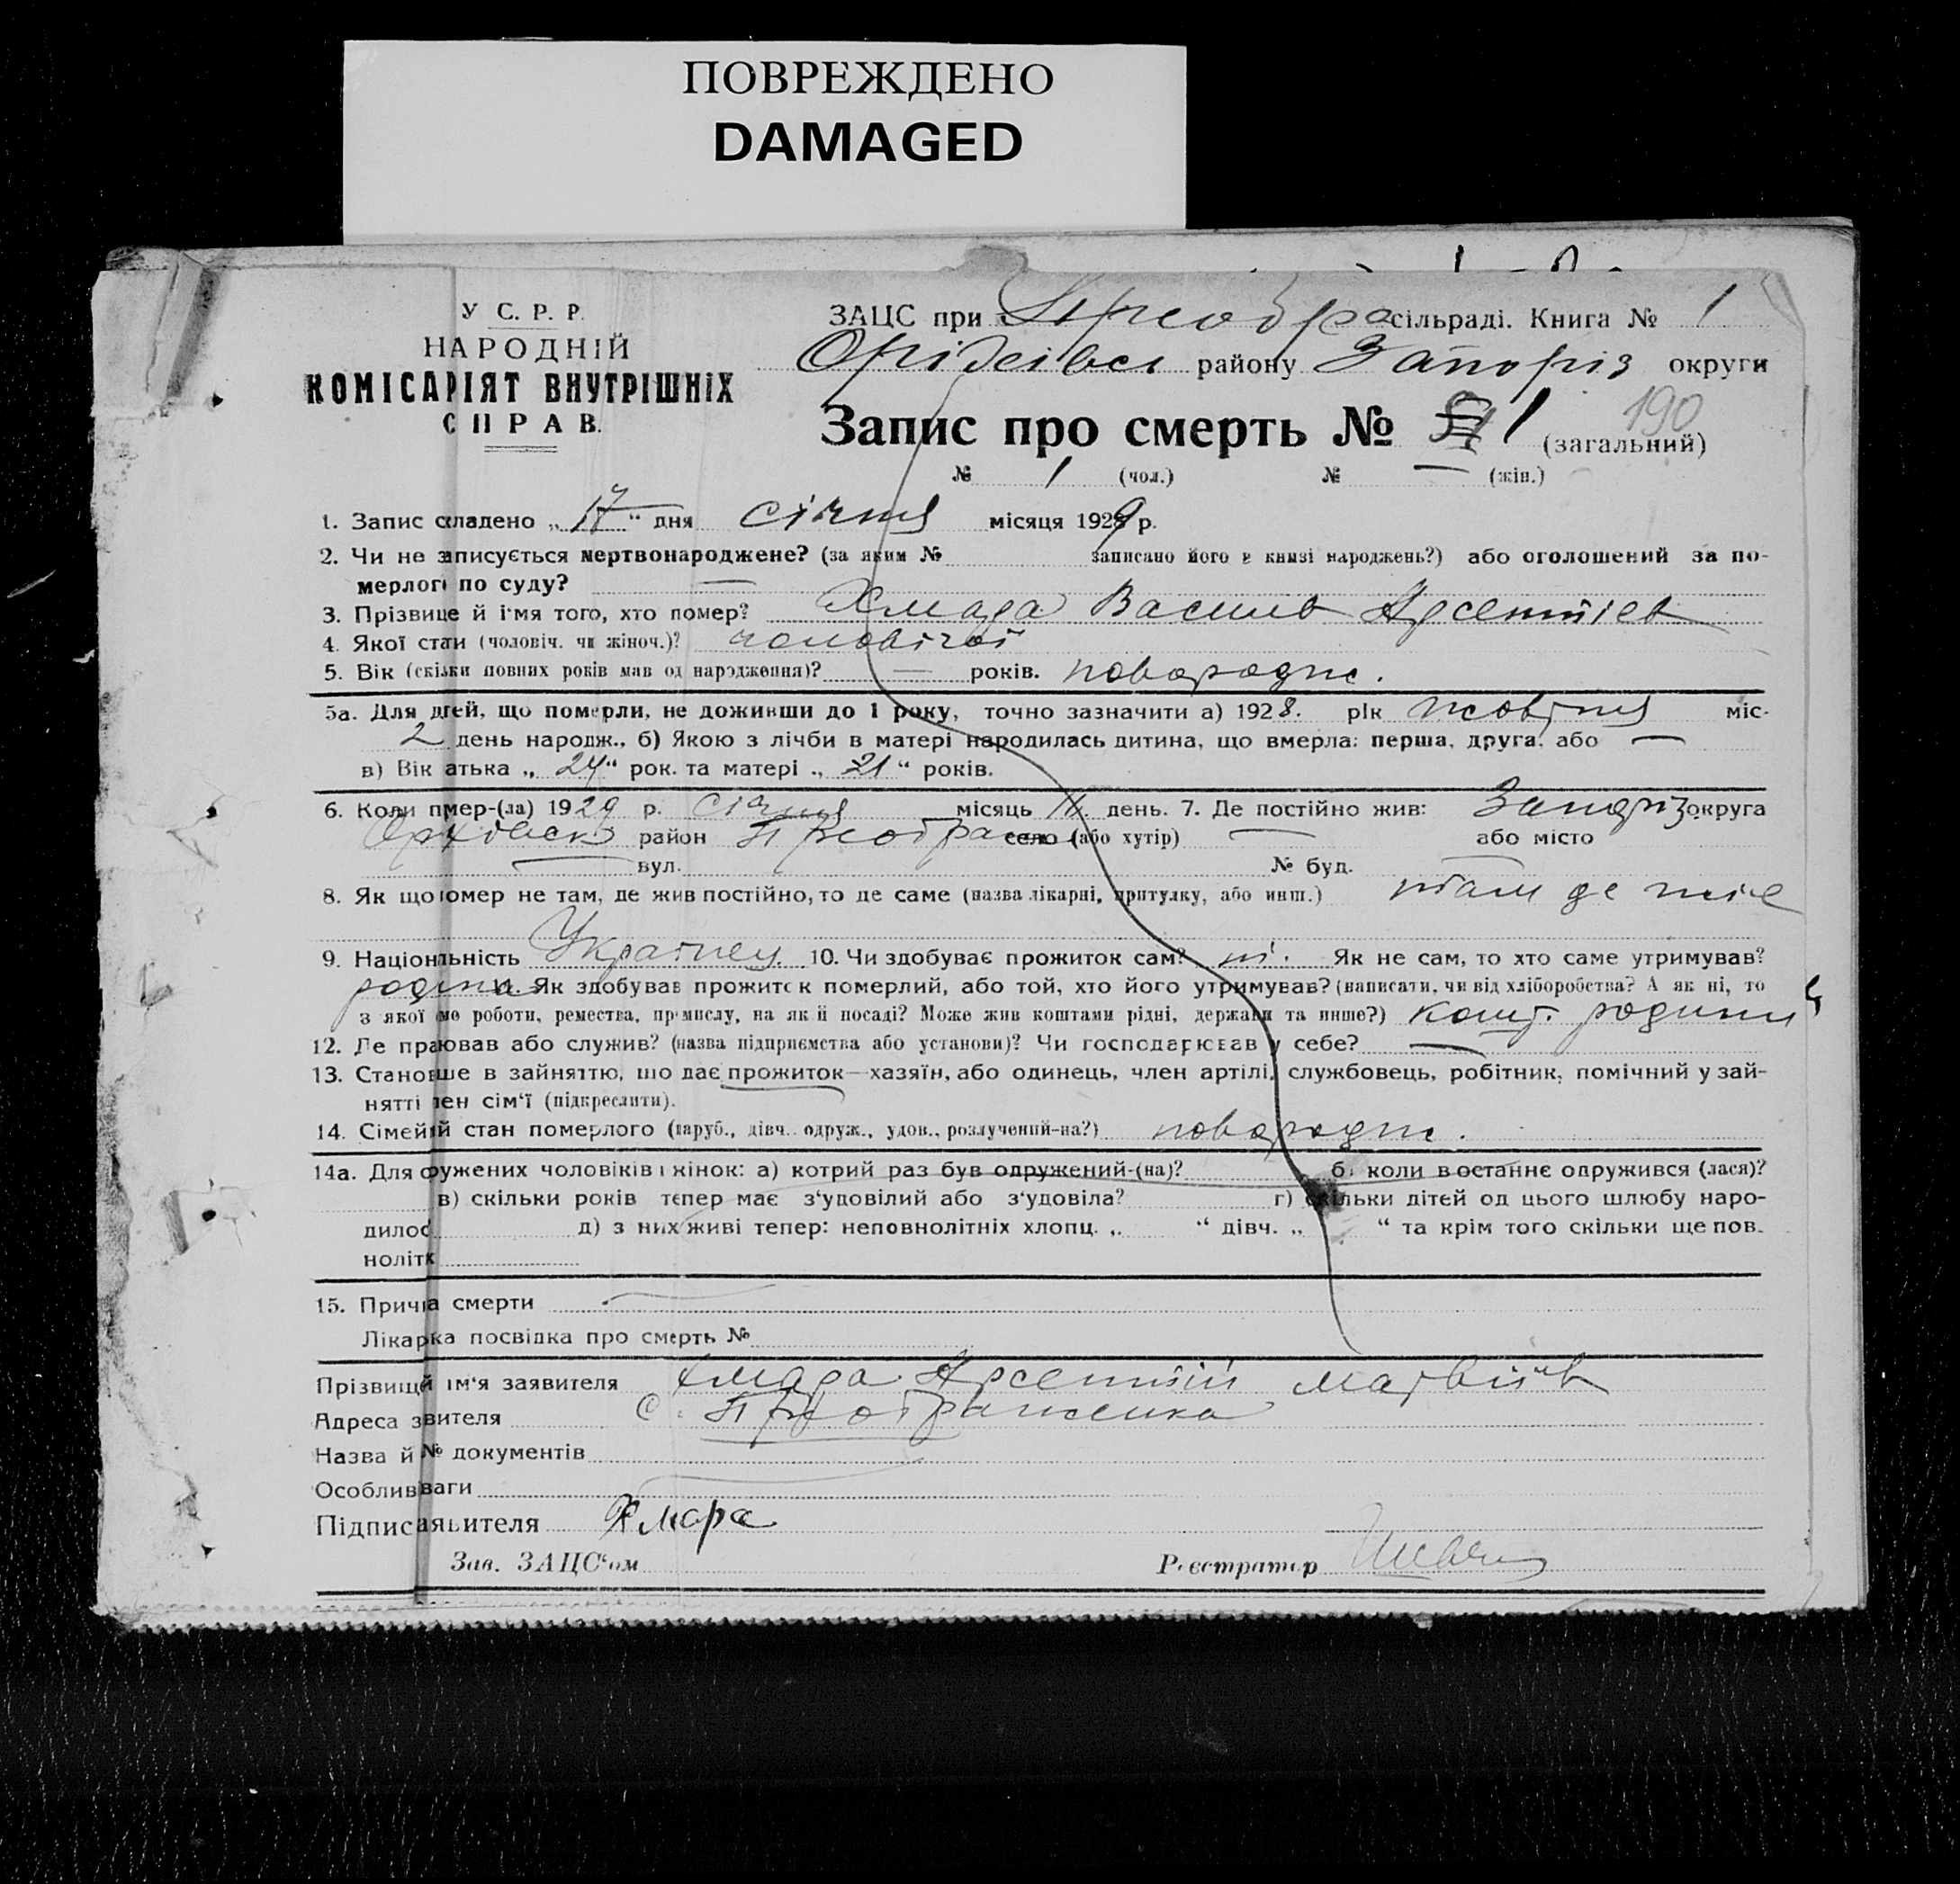 ПОВРЕЖДЕНО
DAMAGED
У С. Р. Р.
НАРОДНІЙ
КОМІСАРІЯТ ВНУТРІШНІХ
СПРАВ.
ЗАЦС при Преобра сільраді. Книга № 1
Оріхівськ району Запоріз округи
Запис про смерть № 1 190 (загальний)
№ 1 (чол.) № — (жін.)
1. Запис складено „ 17 “ дня січня місяця 1929 р.
2. Чи не записується мертвонароджене? (за яким № записано його в книзі народжень?) або оголошений за по-
мерлого по суду? —
3. Прізвище й ім'я того, хто помер? Хмара Василь Арсентіев
4. Якої стати (чоловіч. чи жіноч.)? чоловічої
5. Вік (скільки повних років мав од народження)? — років. новородне.
5а. Для дітей, що померли, не доживши до 1 року, точно зазначити а) 1928. рік жовтня міс-
2 день народж., б) Якою з лічби в матері народилась дитина, що вмерла: перша, друга, або —
в) Вік батька „ 24 “ рок. та матері „ 21 “ років.
6. Коли помер-(ла) 1929 р. січня місяць день. 7. Де постійно жив: Запоріз округа
Оріхівськ район Преображен село (або хутір) — або місто —
— вул. № буд.
8. Як що помер не там, де жив постійно, то де саме (назва лікарні, притулку, або инш.) там де жив
9. Національність Українец. 10. Чи здобуває прожиток сам? ні. Як не сам, то хто саме утримував?
родина. Як здобував прожиток померлий, або той, хто його утримував? (написати, чи від хліборобства? А як ні, то
з якої саме роботи, ремества, промислу, на якій посаді? Може жив коштами рідні, держави та инше?) кошт. родини
12. Де працював або служив? (назва підприємства або установи)? Чи господарював у себе? —
13. Становище в зайняттю, що дає прожиток—хазяїн, або одинець, член артілі, службовець, робітник, помічний у зай-
нятті член сім'ї (підкреслити).
14. Сімейній стан померлого (паруб., дівч. одруж., удов., розлучений-на?) новородне.
14а. Для одружених чоловіків і жінок: а) котрий раз був одружений-(на)? б) коли востаннє одружився (лася)?
в) скільки років тепер має з'удовілий або з'удовіла? г) скільки дітей од цього шлюбу наро-
дилось д) з них живі тепер: неповнолітніх хлопц. „ “ дівч. „ “ та крім того скільки ще пов-
нолітк
15. Причина смерти —
Лікарська посвідка про смерть №
Прізвище й ім'я заявителя Хмара Арсентій Матвіїв
Адреса заявителя с. Преображенка
Назва й № документів
Особливі уваги
Підпис заявителя Хмара
Зав. ЗАЦС'ом Реєстратор